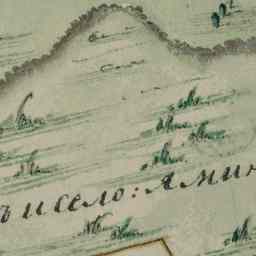 ъ и село: Ямин